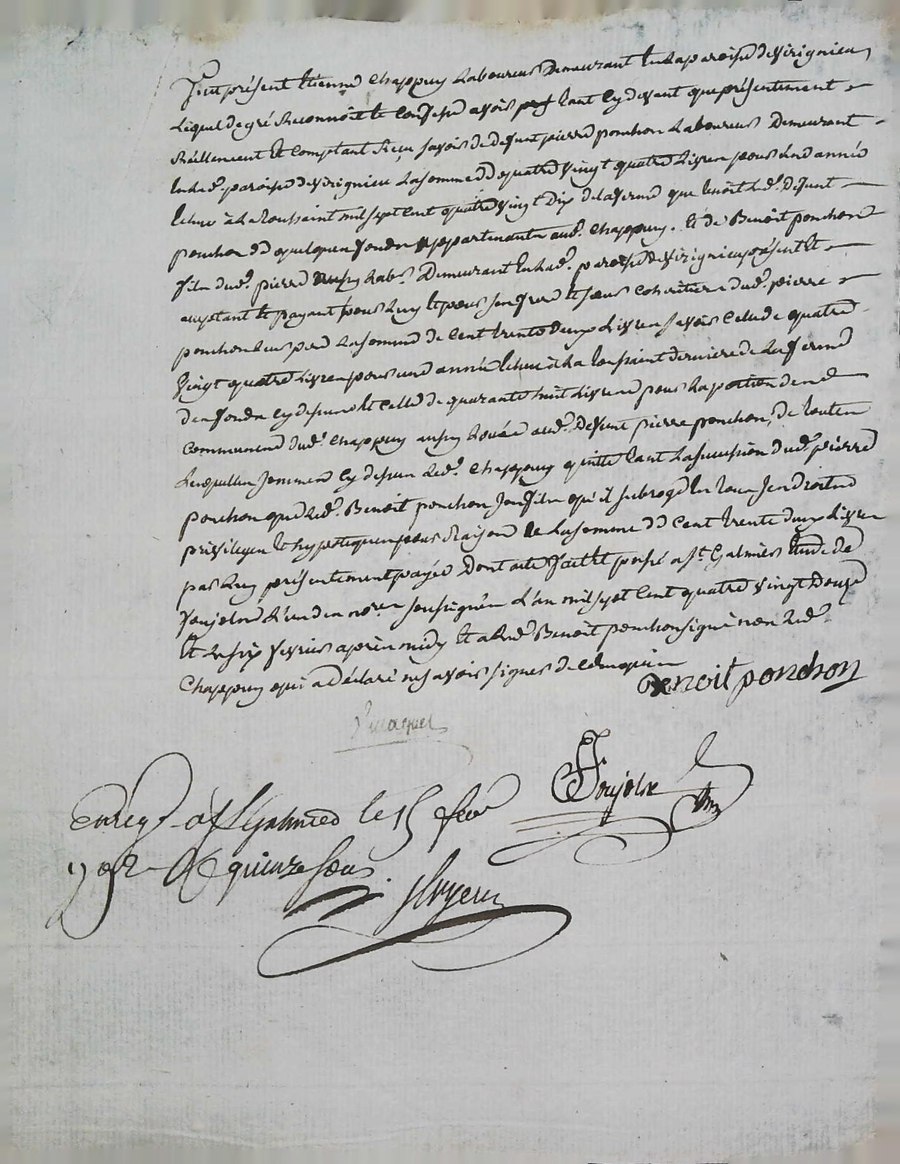 Fut présent Etienne Chappuy Laboureur Demeurant en la paroisse de Virignieu
Lequel de gré Reconnoit et Confesse avoir tant cy devant que présentement
Réellement et Comptant Reçu savoir de defunt pierre ponchon Laboureur Demeurant
en lad. paroisse de Virignieu La somme de quatre vingt quatre Livres pour une année
Echue à La Toussaint mil sept cent quatre vingt Dix de la ferme que tenoit led. Defunt
ponchon de quelques fonds appartenants aud. Chappuy. Et de Benoit ponchon
fils dud. pierre aussy Lab. Demeurant en lad. paroisse de Virignieu présent Et
acceptant Et payant pour Luy Et pour ses frere Et sœur cohéritiers dud. pierre
ponchon Leur pere La somme de Cent trente deux Livres savoir Celle de quatre
Vingt quatre Livres pour une année Echue à La Toussaint derniere de La ferme
des fonds cy dessus Et Celle de quarante huit Livres pour La portion de
Communaux dud. Chappuy aussy Louée aud. Defunt pierre ponchon, de toutes
Lesquelles sommes cy dessus Led. Chappuy quitte tant La succession dud. pierre
ponchon que Led. Benoit ponchon son fils qu'il subroge en tous ses droits
privileges Et hypotheques pour Raison de La somme de Cent trente deux Livres
par Luy présentement payée Dont acte fait Et passé a St. Galmier Etude de
Foujols L'un des no.res soussignés L'an mil sept Cent quatre vingt Douze
Et Le six fevrier après midy Et a Led. Benoit ponchon signé non Led.
Chappuy qui a Déclaré ne savoir signer de ce enquis
Benoit ponchon
Foujols
Enreg. a St galmier le 15 fev
1792 R quinze sous.